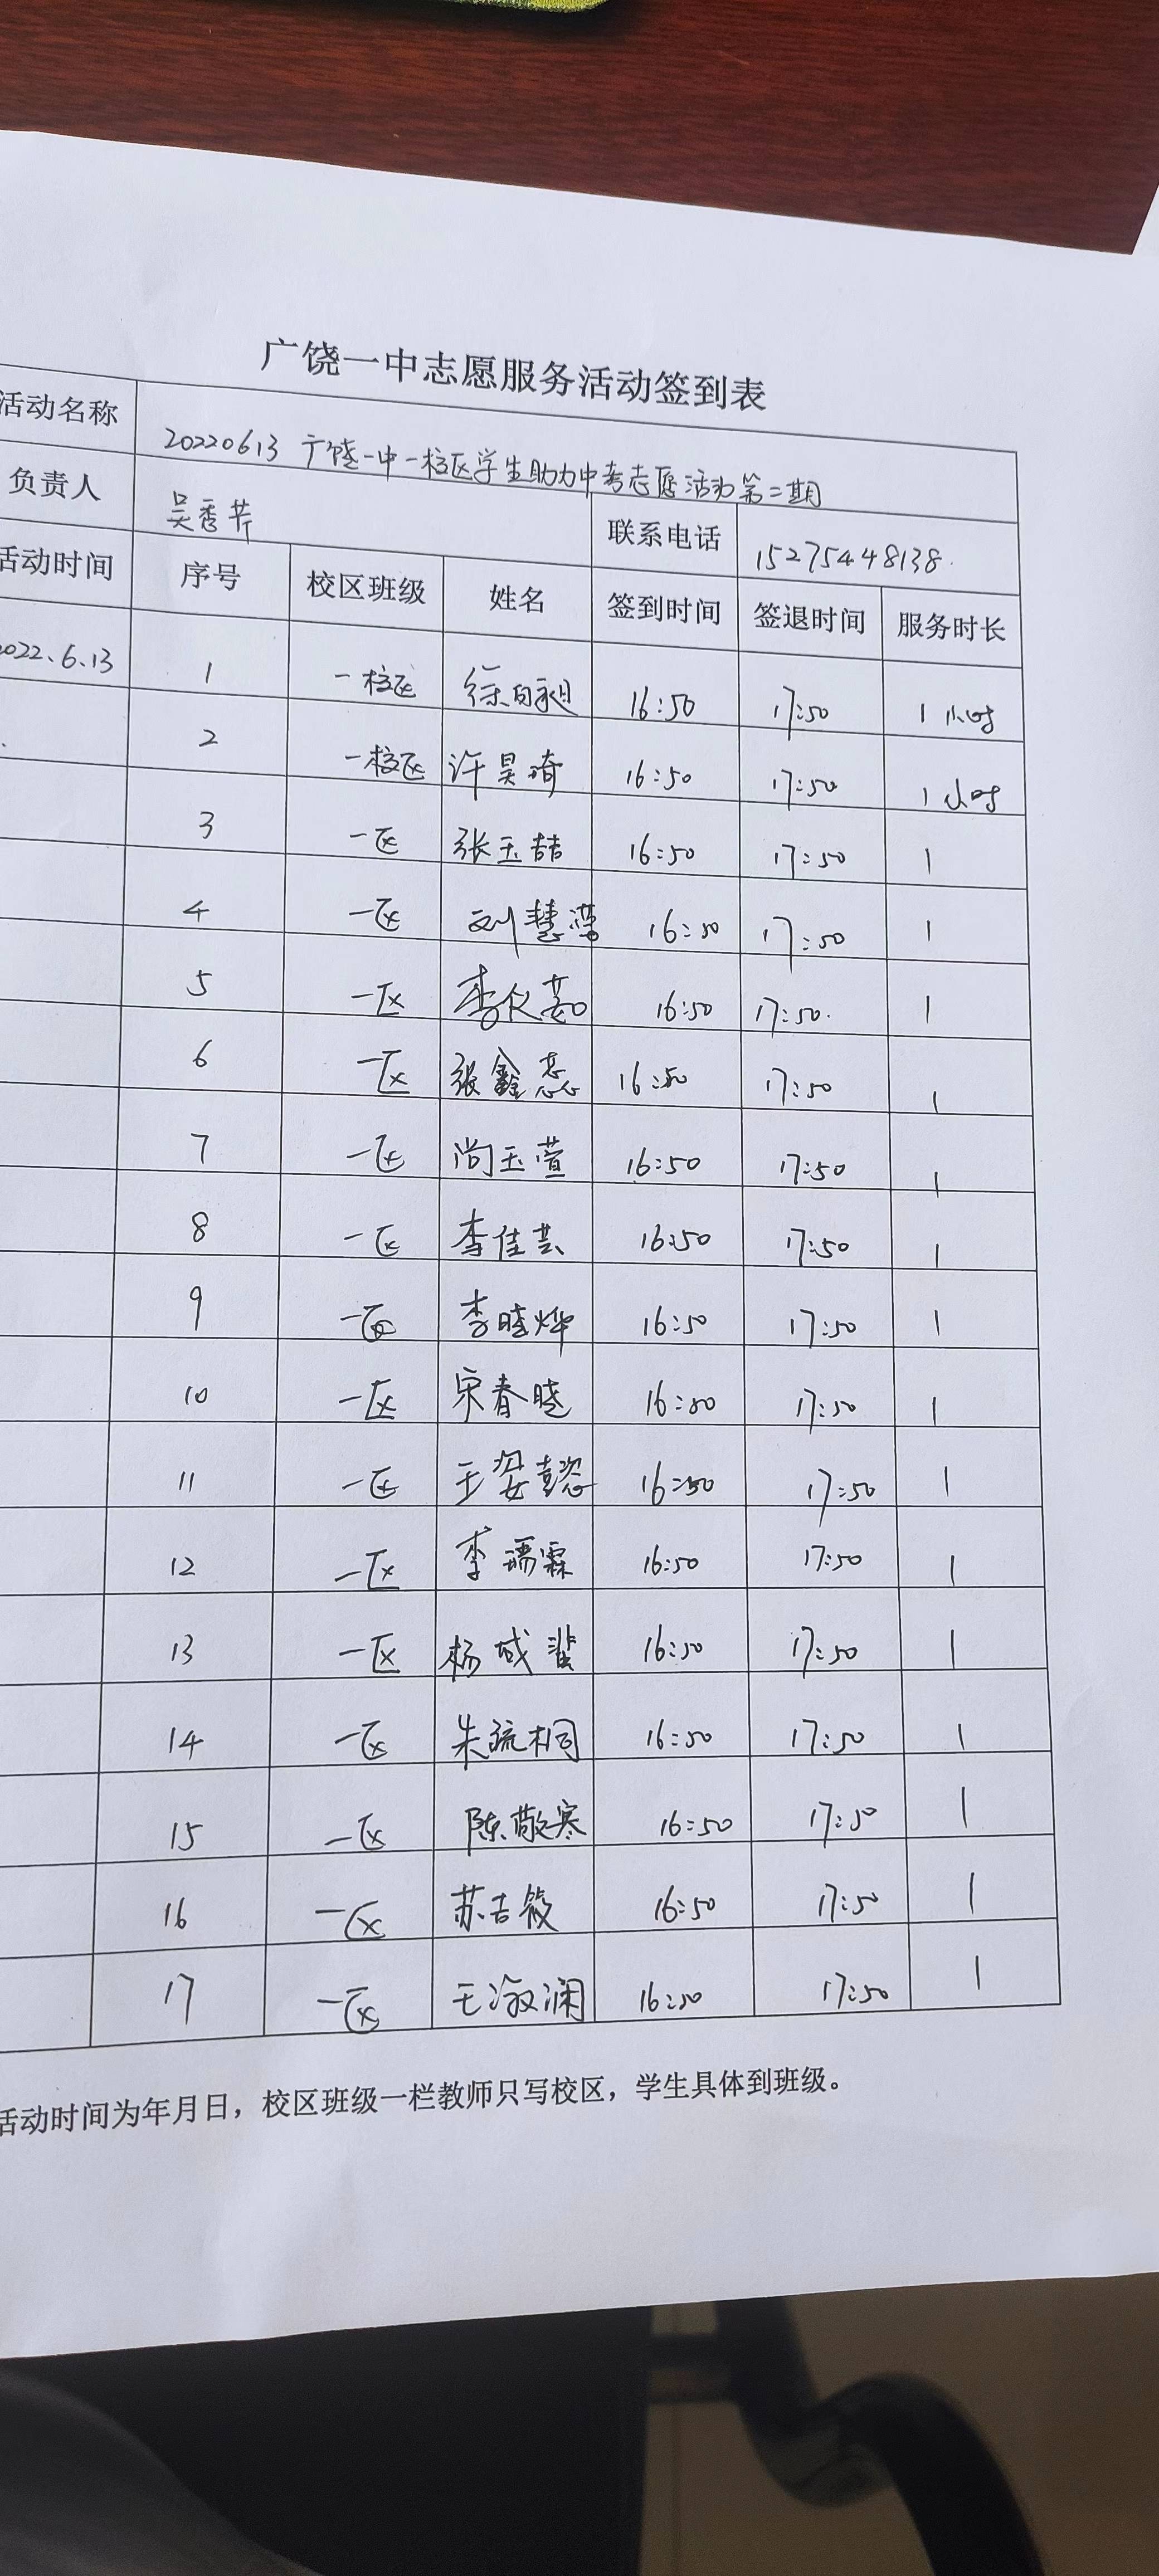 广饶一中志愿服务活动签到表
活动名称 20220613 广饶一中一校区学生助力中考志愿活动第二期
负责人 吴秀芹 联系电话 15275448138
活动时间 序号 校区班级 姓名 签到时间 签退时间 服务时长
2022.6.13 1 一校区 16:50 17:50 1小时
2 一校区 许昊琦 16:50 17:50 1小时
3 一区 张玉喆 16:50 17:50 1
4 一区 刘慧 16:50 17:50 1
5 一区 李仪茹 16:50 17:50 1
6 一区 张鑫蕊 16:50 17:50 1
7 一区 尚玉萱 16:50 17:50 1
8 一区 李佳芸 16:50 17:50 1
9 一区 李晓烨 16:50 17:50 1
10 一区 宋春晓 16:50 17:50 1
11 一区 王姿懿 16:50 17:50 1
12 一区 李瑞霖 16:50 17:50 1
13 一区 杨域 16:50 17:50 1
14 一区 朱疏桐 16:50 17:50 1
15 一区 陈敬寒 16:50 17:50 1
16 一区 苏吉筱 16:50 17:50 1
17 一区 王淑澜 16:50 17:50 1
活动时间为年月日，校区班级一栏教师只写校区，学生具体到班级。